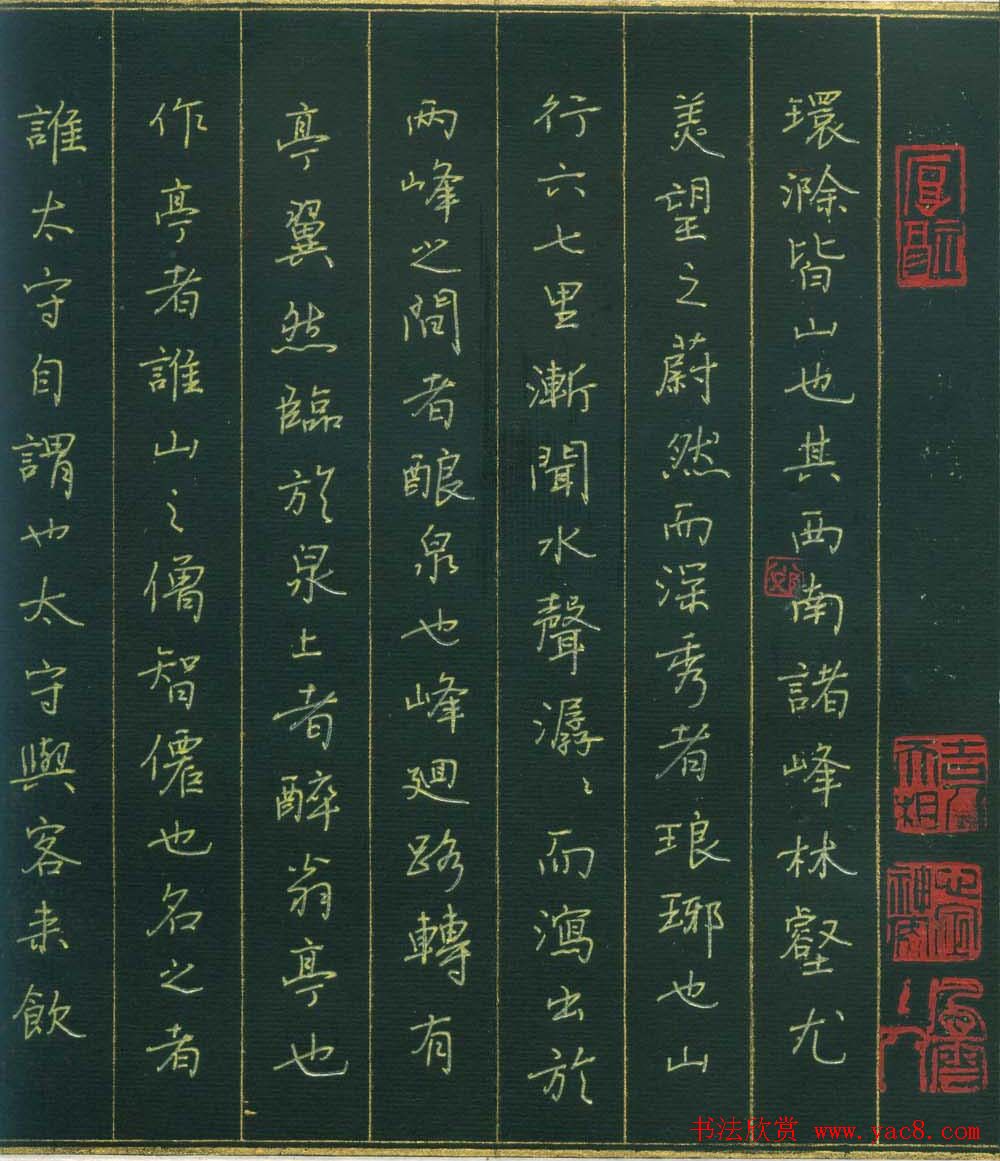 環滁皆山也其西南諸峰林壑尤
美望之蔚然而深秀者琅琊也山
行六七里漸聞水聲潺〻而瀉出於
两峰之間者酿泉也峰廻路轉有
亭翼然臨於泉上者醉翁亭也
作亭者誰山之僧智僊也名之者
誰太守自謂也太守與客来飲
书法欣赏 www.yac8.com